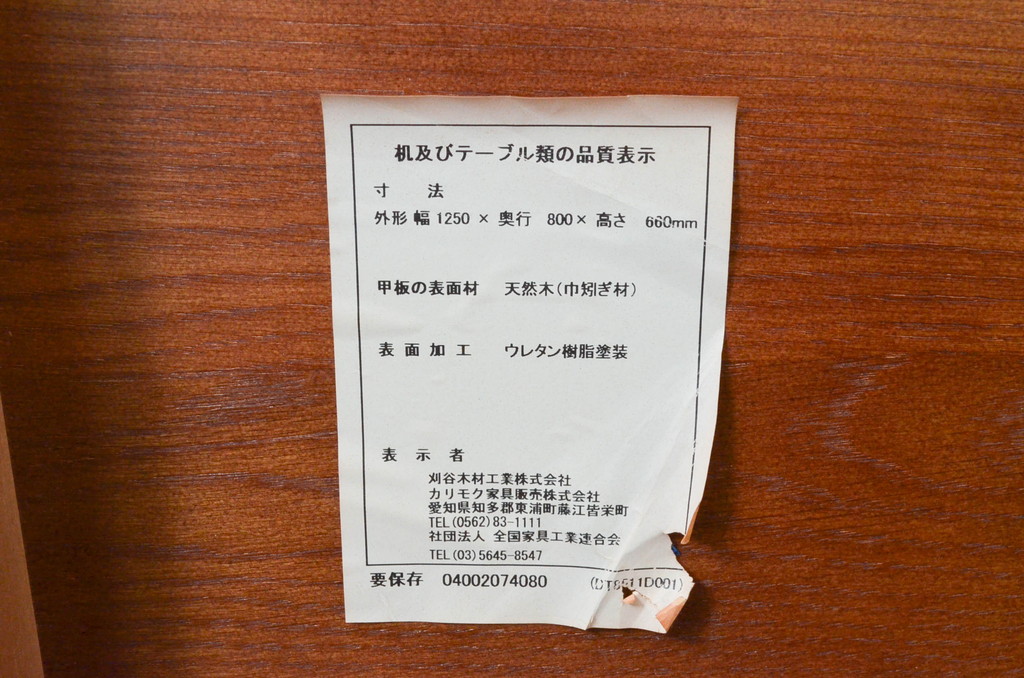 机及びテーブル類の品質表示
寸 法
外形 幅 1250 × 奥行 800× 高さ 660mm
甲板の表面材 天然木(巾矧ぎ材)
表 面 加 工 ウレタン樹脂塗装
表 示 者
刈谷木材工業株式会社
カリモク家具販売株式会社
愛知県知多郡東浦町藤江皆栄町
TEL(0562)83-1111
社団法人 全国家具工業連合会
TEL(03)5645-8547
要保存 04002074080